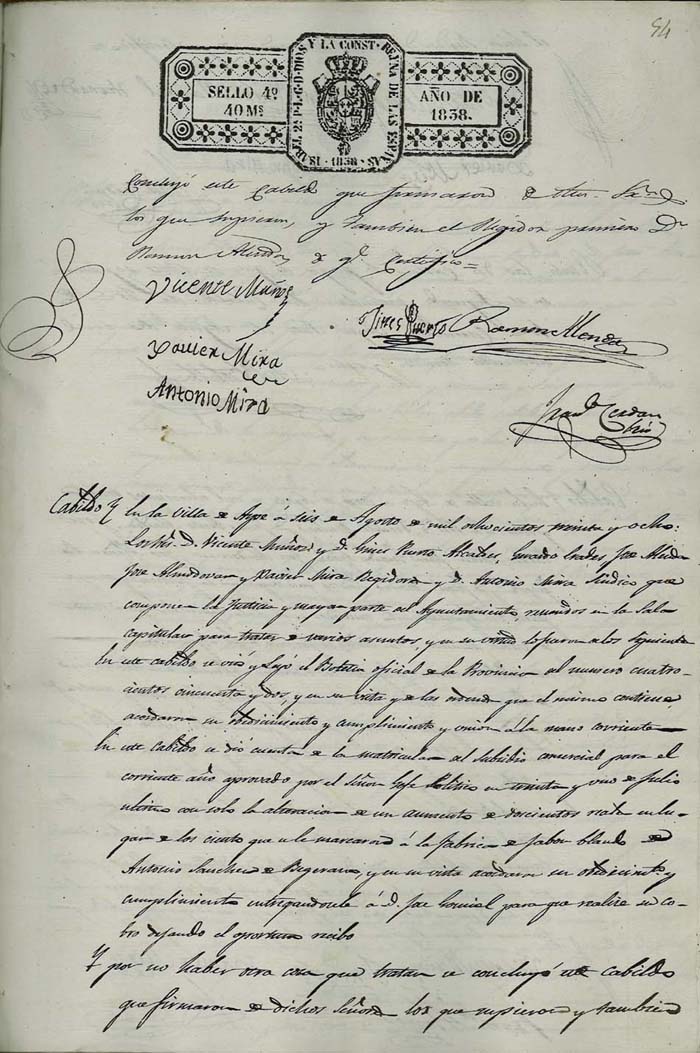 54
ISABEL 2ª P.L.G.D. DIOS Y LA CONST. REINA DE LAS ESPAÑAS
1838
SELLO 4º
40 Ms
AÑO DE
1838.
Concluyó este Cabildo que firmaron de
los que supieron, y tambien el Regidor primero Dn
Ramon de qe Certifico=
Vicente Muñoz
Gines Puerto Ramon
Xavier Mira
Antonio Mira
Franco Cerdan
Cabildo En la villa de Aspe á seis de Agosto de mil ochocientos treinta y ocho:
Los Sres. D. Vicente Muñoz y D. Gines Puerto Alcaldes, José
José Almodovar y Xavier Mira Regidores y D. Antonio Mira Sindico que
componen la Justicia y mayor parte del Ayuntamiento, reunidos en la Sala
capitular para tratar de varios asuntos, y en su virtud lo fueron de los siguientes
En este cabildo se vió y leyó el Boletin oficial de la Provincia del numero cuatro-
cientos cincuenta y dos, y en su vista y de las ordenes que el mismo contiene
acordaron su obedecimiento y cumplimiento y union á la mano corriente
En este Cabildo se dió cuenta de la matricula del subsidio comercial para el
corriente año aprovado por el Señor Gefe Politico en treinta y uno de Julio
ultimo con solo la alteracion de un aumento de doscientos reales en lu-
gar de los ciento que se le marcaron á la fabrica de jabon blando de
Antonio Sanchez de Begerano, y en su vista acordaron su obedecimto. y
cumplimiento entregandosele á D. José para que realize su co-
bro dejando el oportuno recibo
Y por no haber otra cosa que tratar se concluyó este cabildo
que firmaron de dichos Señores los que supieron y tambien